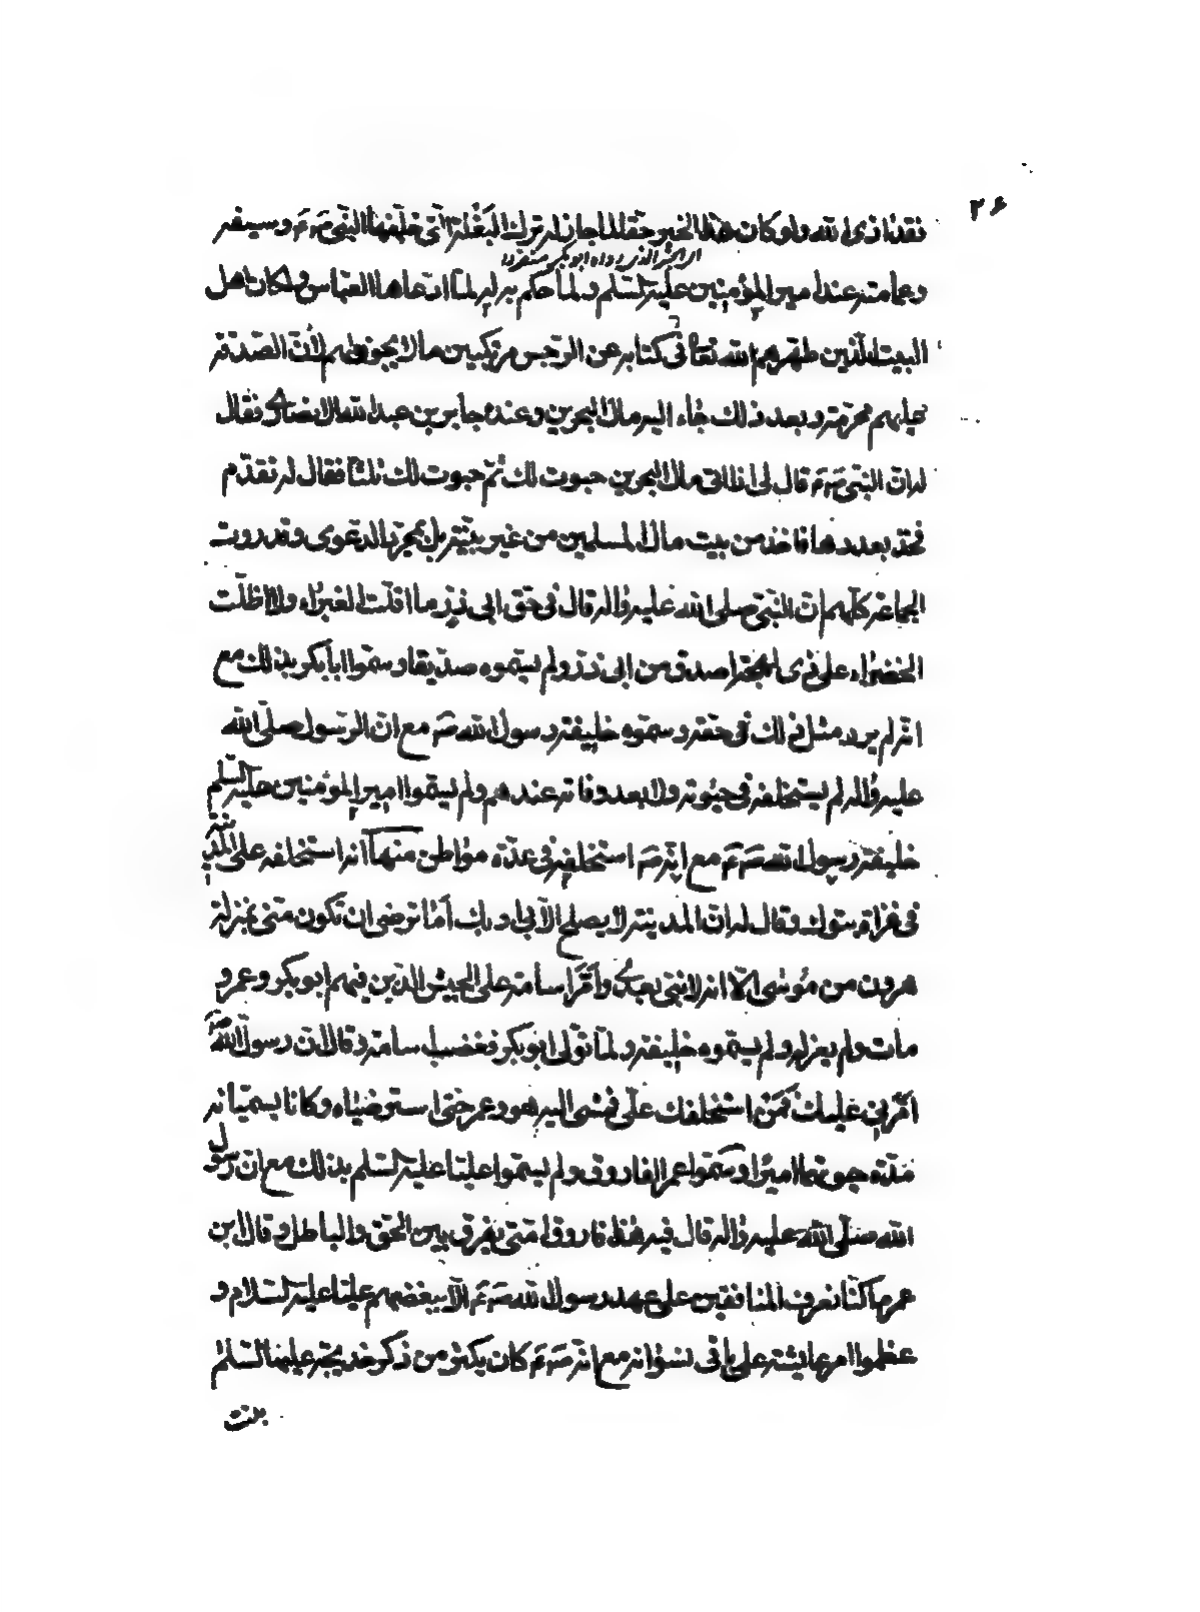 ٢٤
فقد اذى الله ولو كان هذا الخبر حقا لما جاز له ترك البغلة التى خلفها النبى ص م وسيفه
اى الخبر الذى رواه ابو بكر منفردا
وعمامته عند امير المؤمنين عليه السلم ولما حكم به له لما ادعاها العباس ولكان اهل
البيت الذين طهرهم الله تعا فى كتابه عن الرجس مرتكبين ما لا يجوز لهم لان الصدقة
عليهم محرمة وبعد ذلك جاء اليه مال البحرين وعنده جابر بن عبد الله الانصارى فقال
له ان النبى ص م قال لى اذا اتى مال البحرين حبوت لك ثم حبوت لك ثلثا فقال له تقدم
فخذ بعددها فاخذ من بيت مال المسلمين من غير بينة بل بمجرد الدعوى وقد روت
الجماعة كلهم ان النبى صلى الله عليه واله قال فى حق ابى ذر ما اقلت الغبراء ولا اظلت
الخضراء على ذى لهجة اصدق من ابى ذر ولم يسموه صديقا وسموا ابا بكر بذلك مع
انه لم يرد مثل ذلك فى حقه وسموه خليفة رسول الله ص مع ان الرسول صلى الله
عليه واله لم يستخلفه فى حيوته ولا بعد وفاته عندهم ولم يسموا امير المؤمنين عليه السلم
خليفة رسول الله ص م مع انه ص استخلفه فى عدة مواطن منها انه استخلفه على المدينة
فى غزاة تبوك وقال له ان المدينة لا يصلح الا بى او بك اما ترضى ان تكون منى بمنزلة
هرون من موسى الا انه لا نبى بعدى وامر اسامة على الجيش الذين فيهم ابو بكر وعمر و
مات ولم يعزله ولم يسموه خليفة ولما تولى ابو بكر فغضب اسامة وقال ان رسول الله ص
امرنى عليك فمن استخلفك على فمشى اليه هو وعمر حتى استرضياه وكانا يسميانه
مدة حيوتهما اميرا وسموا عمر الفاروق ولم يسموا عليا عليه السلم بذلك مع ان رسول
الله صلى الله عليه واله قال فيه هذا فاروق امتى يفرق بين الحق والباطل وقال ابن
عمر ما كنا نعرف المنافقين على عهد رسول الله ص م الا ببغضهم عليا عليه السلام و
عظموا امر عايشة على باقى نسوانه مع انه ص م كان يكثر من ذكر خديجة عليها السلم
بنت